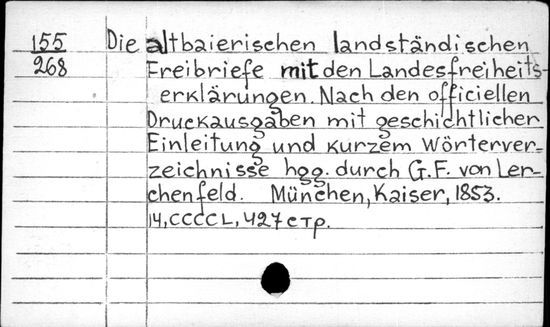 155 Die altbaierischen landständischen
268 Freibriefe mit den Landesfreiheits-
erklärungen. Nach den officiellen
Druckausgaben mit geschichtlicher
Einleitung und kurzem Wörterver-
zeichnisse hgg. durch G.F. von Ler-
chenfeld. München, Kaiser, 1853.
14, CCCCL, 427 стр.